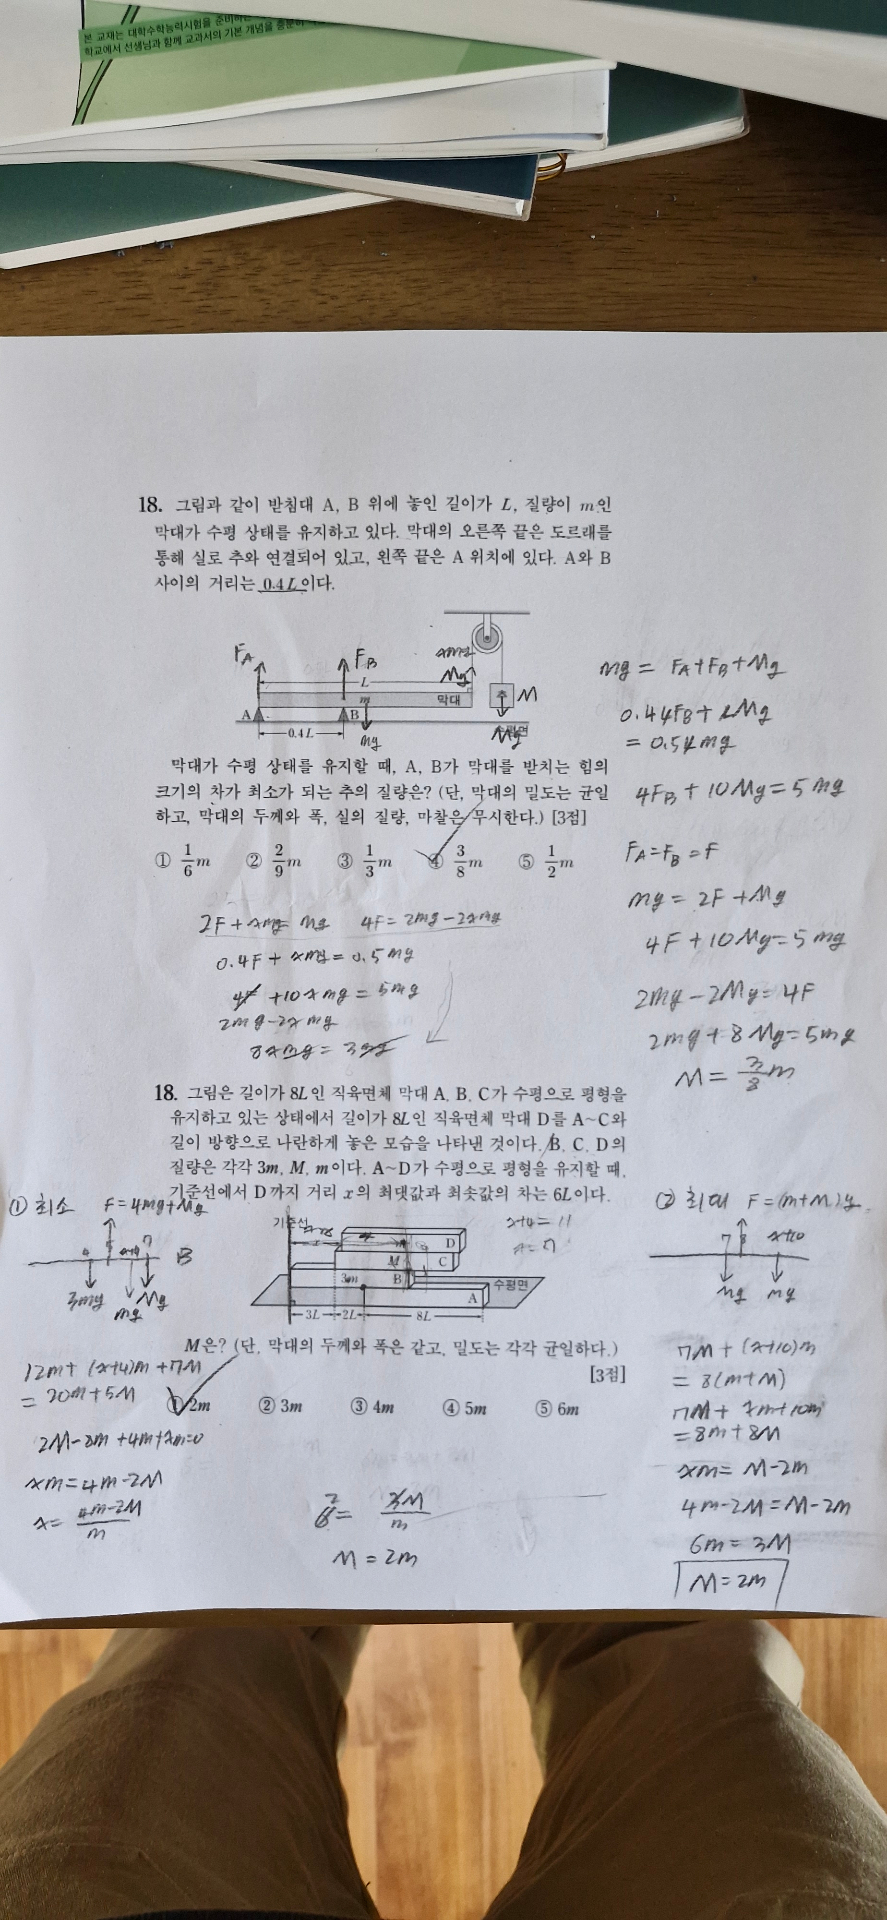 본 교재는 대학수학능력시험을 준비하는
학교에서 선생님과 함께 교과서의 기본 개념을 충분히
18. 그림과 같이 받침대 A, B 위에 놓인 길이가 L, 질량이 m인
막대가 수평 상태를 유지하고 있다. 막대의 오른쪽 끝은 도르래를
통해 실로 추와 연결되어 있고, 왼쪽 끝은 A 위치에 있다. A와 B
사이의 거리는 0.4L이다.
F_A F_B Mg
L
m 막대 추 M
A B
0.4L mg Mg 수평면
mg = F_A + F_B + Mg
= 0.5Lmg
4F_B + 10Mg = 5mg
F_A = F_B = F
mg = 2F + Mg
4F + 10Mg = 5mg
2mg - 2Mg = 4F
2mg + 8Mg = 5mg
M = 3/8 m
막대가 수평 상태를 유지할 때, A, B가 막대를 받치는 힘의
크기의 차가 최소가 되는 추의 질량은? (단, 막대의 밀도는 균일
하고, 막대의 두께와 폭, 실의 질량, 마찰은 무시한다.) [3점]
① 1/6 m ② 2/9 m ③ 1/3 m ④ 3/8 m ⑤ 1/2 m
2F + xmg = mg 4F = 2mg - 2xmg
0.4F + xmg = 0.5mg
4F + 10xmg = 5mg
2mg - 2xmg
8xmg = 3mg
18. 그림은 길이가 8L인 직육면체 막대 A, B, C가 수평으로 평형을
유지하고 있는 상태에서 길이가 8L인 직육면체 막대 D를 A~C와
길이 방향으로 나란하게 놓은 모습을 나타낸 것이다. B, C, D의
질량은 각각 3m, M, m이다. A~D가 수평으로 평형을 유지할 때,
기준선에서 D까지 거리 x의 최댓값과 최솟값의 차는 6L이다.
① 최소 F = 4mg + Mg
4 x+4 7 B
3mg mg Mg
기준선
x D
M C
3m B
A 수평면
3L 2L 8L
x+4 = 11
x = 7
② 최대 F = (m+M)g
7 8 x+10
Mg mg
M은? (단, 막대의 두께와 폭은 같고, 밀도는 각각 균일하다.)
[3점]
① 2m ② 3m ③ 4m ④ 5m ⑤ 6m
12m + (x+4)m + 7M
= 20m + 5M
2M - 8m + 4m + xm = 0
xm = 4m - 2M
x = 4m-2M / m
6 = 3M / m
2
M = 2m
7M + (x+10)m
= 8(m+M)
7M + xm + 10m
= 8m + 8M
xm = M - 2m
4m - 2M = M - 2m
6m = 3M
M = 2m